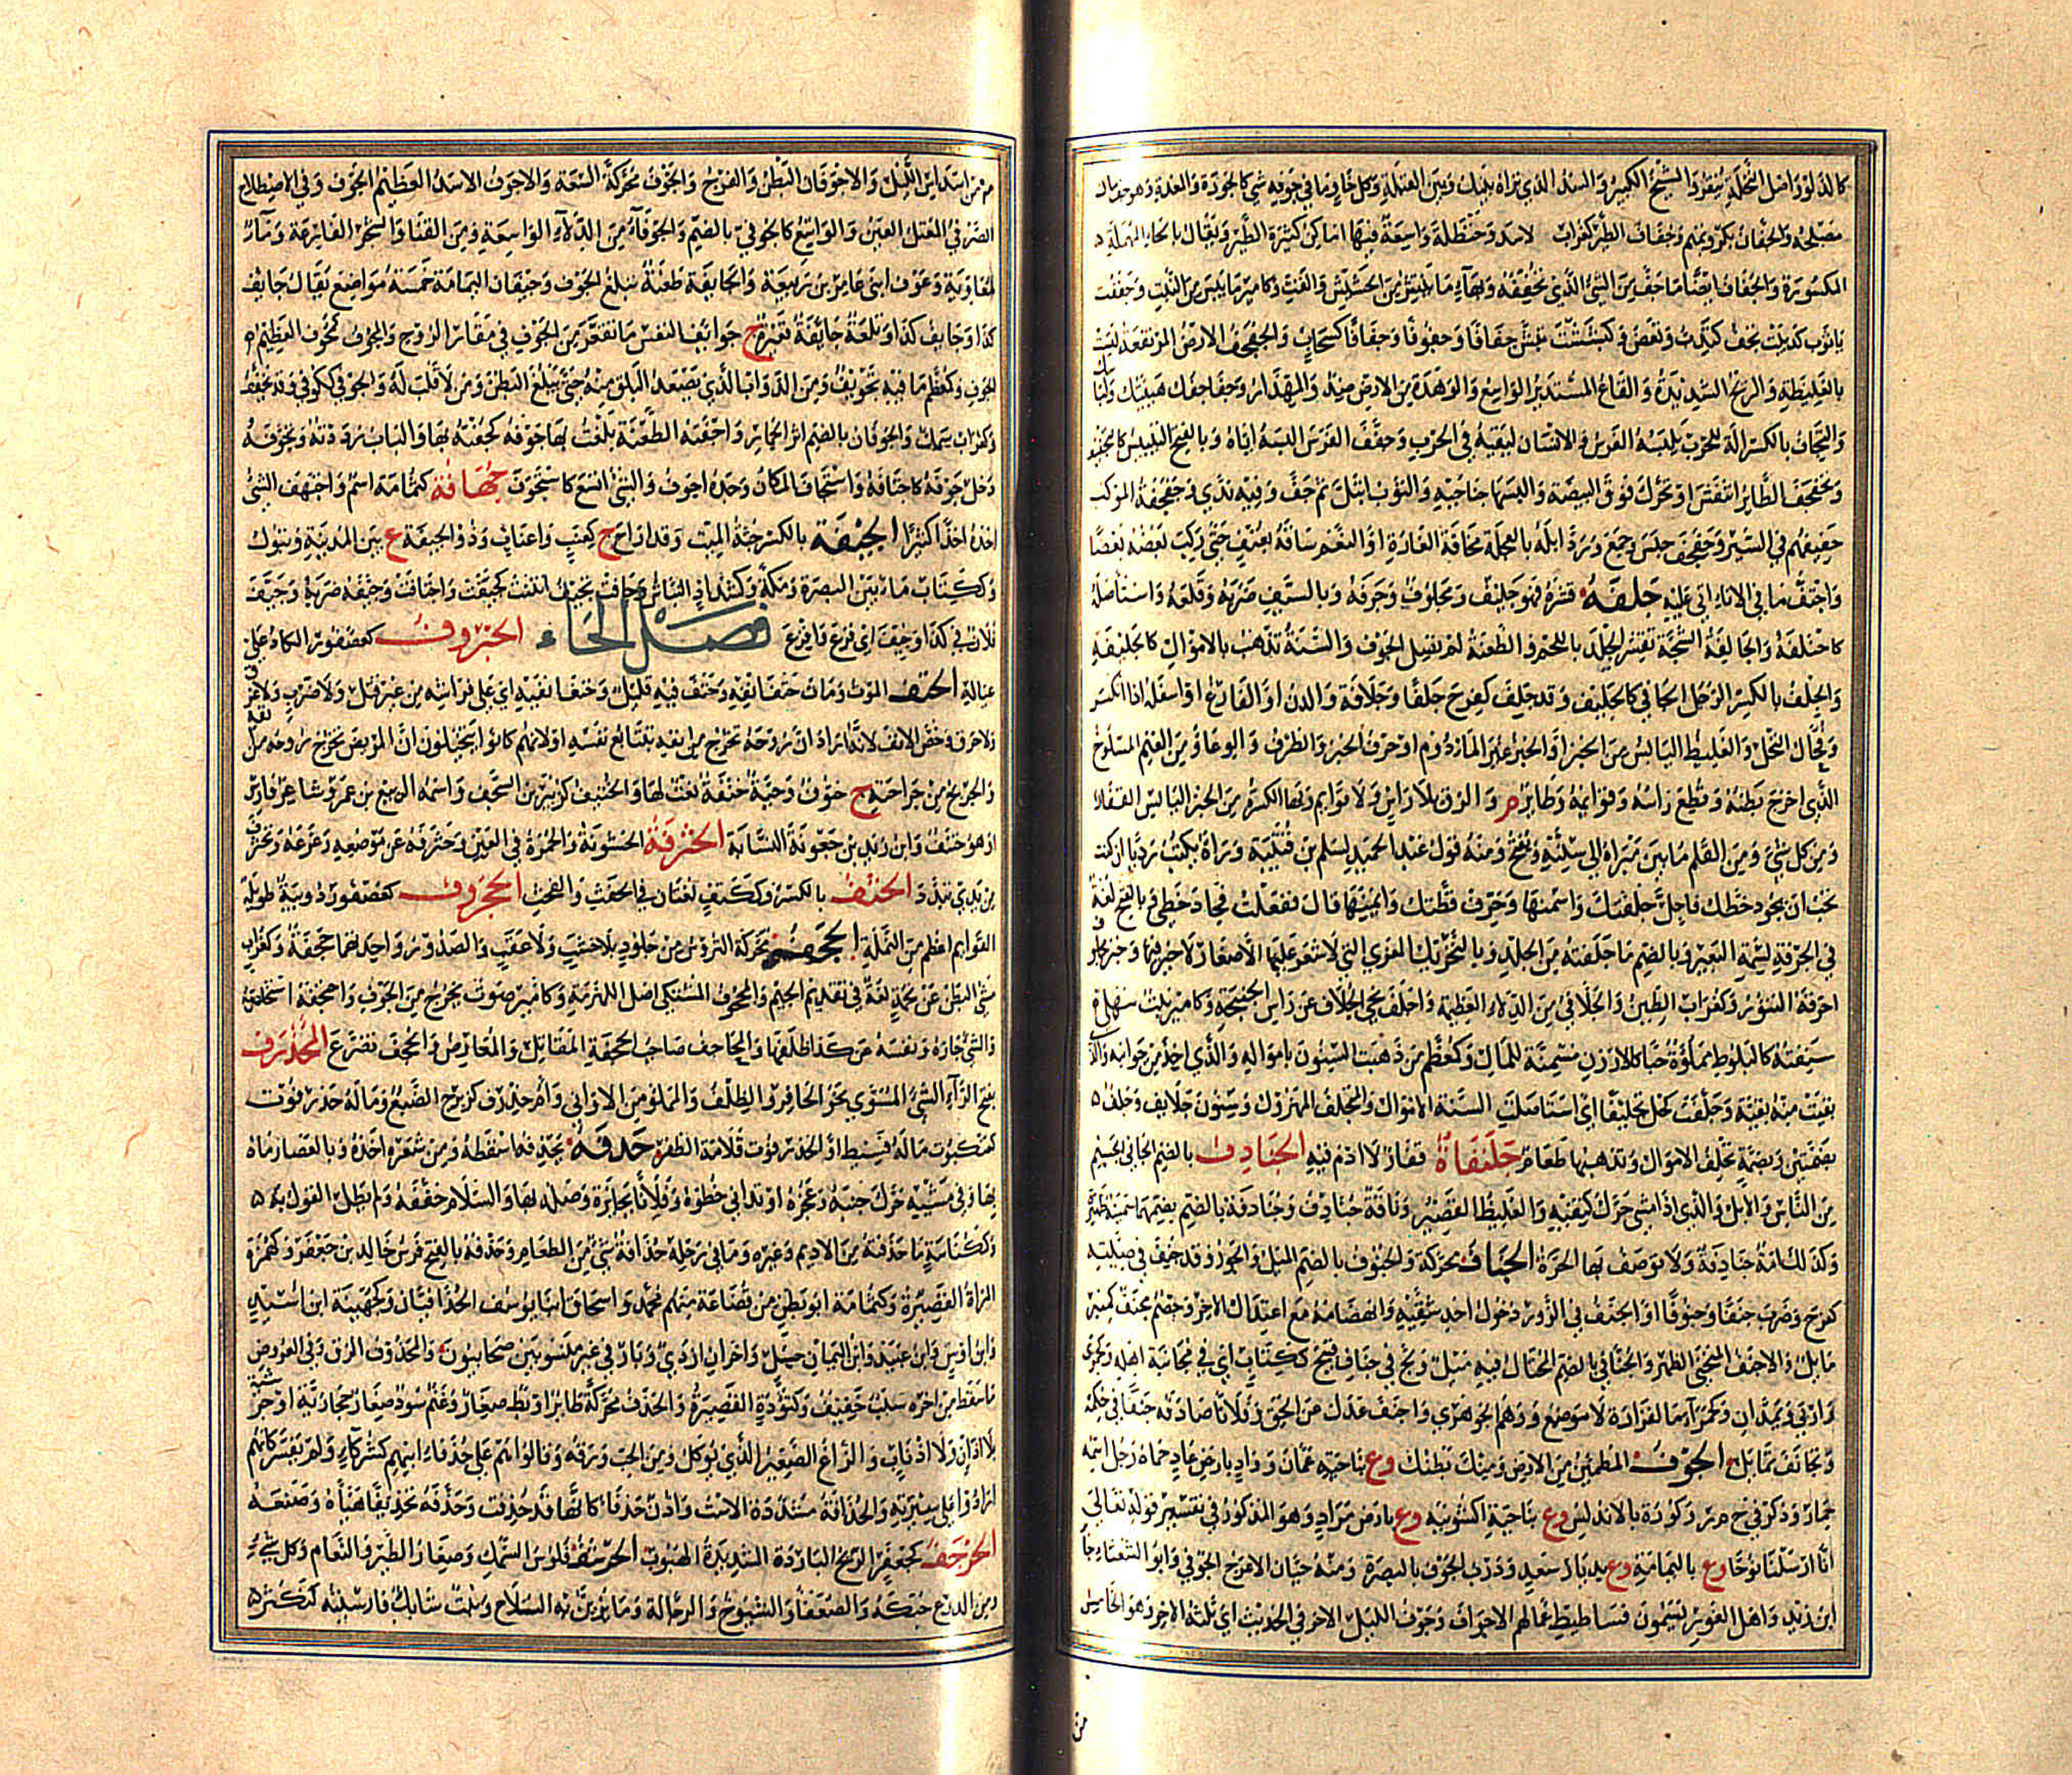 كالدلو واصل النخلة ينقر والشيخ الكبير والسد الذي تراه بينك وبين القبلة وكل خاو ما في جوفه شي كالجوزة والمغدة وهو جف مال
مصلحه والجفان بكر وتميم وجفاف الطير كغراب لاسد وحنظلة واسعة فيها اماكن كثيرة الطير ويقال بالحاء المهملة
المكسورة والجفاف ايضا ما جف من الشئ الذي تجففه وبهاء ما ينتثر من الحشيش والقت وكامير ما يبس من النبت وجففت
يا ثوب كدببت تجف كتدب وتعض وكبششت تبش جفافا وجفوفا وجفافا كسحاب والجفجف الارض المرتفعة ليست
بالغليظة والريح الشديدة والقاع المستدير الواسع والوهدة من الارض ضد والمهذار وجفاجفك هيئتك ولباسك
والتجفاف بالكسر الة للحرب يلبسه الفرس والانسان ليقيه في الحرب وجفف الفرس البسه اياه وبالفتح التيبيس كالتجفيف
وتجفجف الطائر انتفش او تحرك فوق البيضة والبسها جناحيه والثوب ابتل ثم جف وفيه ندى وجفجفة الموكب
حفيفهم في السير وجفجف حبس وجمع ورد ابله بالعجلة مخافة الغارة او النعم ساقه بعنف حتى ركب بعضه بعضا
واجتف ما في الاناء اتى عليه جلفه قشره فهو جليف ومجلوف وجرفه وبالسيف ضربه وقلعه واستاصله
كاجتلفه والجالفة الشجة تقشر الجلد باللحم والطعنة لم تصل الجوف والسنة تذهب بالاموال كالجليفة
والجلف بالكسر الرجل الجافي كالجليف وقد جلف كفرح جلفا وجلافة والدن او الفارغ او اسفله اذا انكسر
وفحال النخل والغليظ اليابس من الخبز او الخبز غير المادوم او حرف الخبز والظرف والوعاء ومن الغنم المسلوخ
الذي اخرج بطنه وقطع راسه وقوائمه وطائر م والزق بلا راس ولا قوائم وبهاء الكسرة من الخبز اليابس القفار
ومن كل شئ ومن القلم ما بين مبراه الى سنته ويفتح ومنه قول عبد الحميد لسلم بن قتيبة وراه يكتب رديا ان كنت
تحب ان يجود خطك فاطل جلفتك واسمنها وحرف قطتك وايمنها قال ففعلت فجاد خطي وبالفتح لغة
في الجرفة لسمة البعير وبالضم ما جلفته من الجلد وبالتحريك المعزى التي لا شعر عليها الا صغار لا خير فيها وخبز مجلوف
احرقه التنور وكغراب الطين والجلافى من الدلاء العظيمة واجلف نحى الجلاف عن راس الجنبخة وكامير نبت سهلي
سنفته كالبلوط مملوءة حبا كالارزن مسمنة للمال وكمعظم من ذهبت السنون بامواله والذي اخذ من جوانبه والذي
بقيت منه بقية وجلفت كحل تجليفا اي استاصلت السنة الاموال والمتجلف المهزول وسنون جلائف وجلف
بضمتين وبضمة تجلف الاموال وتذهبها طعام جلنفاة قفار لا ادم فيه الجنادف بالضم الجافي الجسيم
من الناس والابل والذي اذا مشى حرك كتفيه والغليظ القصير وناقة جنادف وجنادفة بالضم
وكذلك امة جنادفة ولا توصف بها الحرة الجناف محركة والجنوف بالضم الميل والجور وقد جنف في وصيته
كفرح وضرب جنفا وجنوفا او الجنف في الزور دخول احد شقيه وانهضامه مع اعتدال الاخر وخصم مجنف كمنبر
مائل والاجنف المنحني الظهر والجنافي بالضم المختال فيه ميل ولج في جناف قبيح ككتاب اي في مجانبة اهله وكجمزى
واربى ويمدان وكحمراء ماء لفزارة لا موضع ووهم الجوهري واجنف عدل عن الحق وفلانا صادفه جنفا في حكمه
وتجانف تمايل الجوف المطمئن من الارض ومنك بطنك وع بناحية عمان وواد بارض عاد حماه رجل اسمه
حمار وذكر في ح م ر وكورة بالاندلس وع بناحية اكشونية وع بارض مراد وهو المذكور في تفسير قوله تعالى
انا ارسلنا نوحا وع باليمامة وع بديار سعد ودرب الجوف بالبصرة ومنه حيان الاعرج الجوفي وابو الشعثاء جا
ابن زيد واهل الغور يسمون فساطيط عمالهم الاجواف وجوف الليل الاخر في الحديث اي ثلثه الاخر وهو الخامس
من
من اسداس الليل والاجوفان البطن والفرج والجوف محركة السعة والاجوف الاسد العظيم الجوف وفي الاصطلاح
الصرفي المعتل العين والواسع كالجوفي بالضم والجوفاء من الدلاء الواسعة ومن القنا والشجر الفارغة وماء
لمعاوية وعوف ابني عامر بن ربيعة والجائفة طعنة تبلغ الجوف وجيفان اليمامة خمسة مواضع يقال جائف
كذا وجائف كذا وتلعة جائفة قعيرة ج جوائف وجوائف النفس ما تقعر من الجوف في مقار الروح والمجوف كمخوف العظيم
الجوف وكمعظم ما فيه تجويف ومن الدواب الذي يصعد البلق منه حتى يبلغ البطن ومن لا قلب له والجوفي ككوفي وقد يخفف
وكغراب سمك والجوفان بالضم اير الحمار واجفته الطعنة بلغت بها جوفه كجفته بها والباب رددته وتجوفه
دخل جوفه كاجتافه واستجاف المكان وجده اجوف والشئ اتسع كاستجوف جهافة كثمامة اسم واجتهف الشئ
اخذه اخذا كثيرا الجيفة بالكسر جثة الميت وقد اراح ج كعنب واعناب وذو الجيفة ع بين المدينة وتبوك
وككتاب ماء بين البصرة ومكة وكشداد النباش وجافت تجيف انتنت كجيفت واجتافت وجيفه ضربه وجيف
فلان في كذا وجيف اي فزع فافزع فصل الحاء الحتروف كعصفور الكاد على
عياله الحتف الموت ومات حتف انفه وحتف فيه قليل وحتف انفيه اي على فراشه من غير قتل ولا ضرب ولا غرق
ولا حرق وخص الانف لانه اراد ان روحه تخرج من انفه بتتابع نفسه او لانهم كانوا يتخيلون ان المريض تخرج روحه من انفه
والجريح من جراحته ج حتوف وحية حتفة نعت لها والحتيف كزبير بن السجف واسمه الربيع بن عمرو شاعر فارس
او هو حنتف وابن زيد بن جعونة النسابة الحثرفة الخشونة والحمرة في العين وحثرفه عن موضعه وعزعه وتحثرف
من يدي تبدد الحثف بالكسر وككتف لغتان في الحفث والفحث الحجروف كعصفور دويبة طويلة
القوائم اعظم من النملة الحجف محركة التروس من جلود بلا خشب ولا عقب والصدور واحدتهما حجفة وكغراب
مشي البطن عن تخمة لغة في تقديم الجيم والمحجوف المشتكي اصل اللهزمة وكامير صوت يخرج من الجوف واحتجفه استخلصه
والشئ حازه ونفسه عن كذا ظلفها والمحاجف صاحب الحجفة المقاتل والمعارض وانحجف تضرع المحذرف
بفتح الراء الشئ المستوي نحو الحافر والظلف والمملوء من الاواني وام حذرف كزبرج الضبع وما له حذرفوت
كعنكبوت ما له فسيط او الحذرفوت قلامة الظفر حذفه يحذفه اسقطه ومن شعره اخذه وبالعصا رماه
بها وفي مشيته حرك جنبه وعجزه او تدانى خطوه وفلانا بجائزة وصله بها والسلام خففه ولم يطل القول به
وككناسة ما حذفته من الاديم وغيره وما في رحله حذافة شئ من الطعام وحذفة بالفتح فرس خالد بن جعفر وكهمزة
المراة القصيرة وكثمامة ابو بطن من قضاعة منهم محمد واسحاق ابنا يوسف الحذافيان وكجهينة ابن اسيد
وابن اوس وابن عبيد وابن اليمان حسل واخران ازدي وبارقي غير منسوبين صحابيون والمحذوف الزق وفي العروض
ما سقط من اخره سبب خفيف وكتؤدة القصيرة والحذف محركة طائر او بط صغار وغنم سود صغار حجازية او جرشية
بلا اذان ولا اذناب والزاغ الصغير الذي يوكل ومن الحب ورقه وقالوا هم على حذفاء ابيهم كشركاء ولم يفسر كانهم
ارادوا على سيرته والحذافة مشددة الاست واذن حذفاء كانها قد حذفت وحذفه تحذيفا هياه وصنعه
الحرجف كجعفر الريح الباردة الشديدة الهبوب الحرشف فلوس السمك وصغار الطير والنعام وكل شئ
ومن الدرع حبكه والضعفاء والشيوخ والرجالة وما يزين به السلاح ونبت شائك فارسيته كنكر